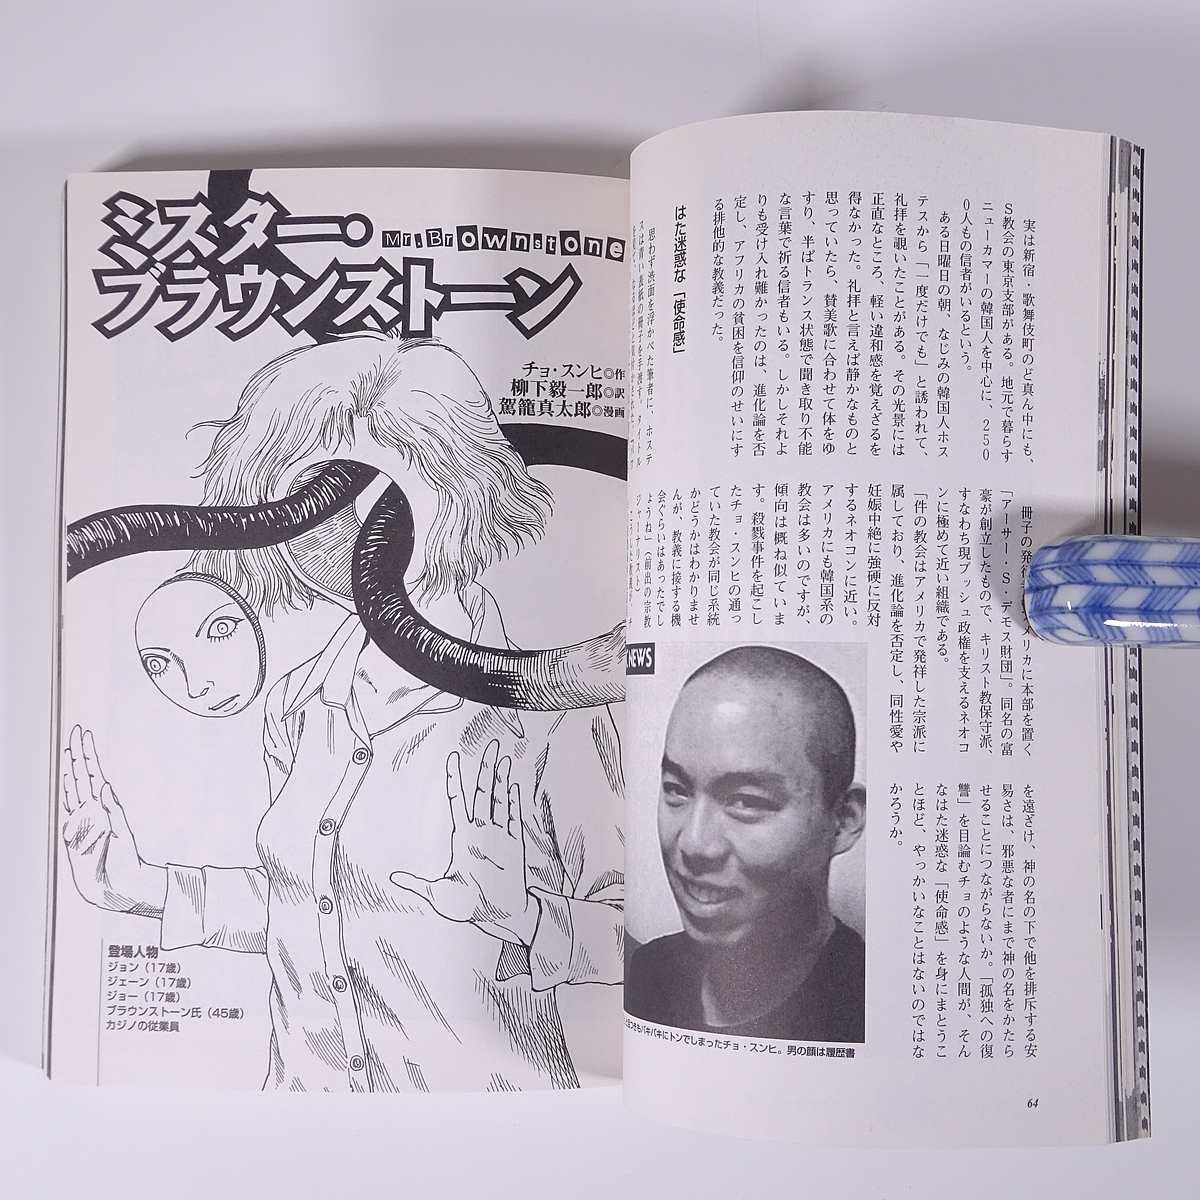 実は新宿・歌舞伎町のど真ん中にも、
S教会の東京支部がある。地元で暮らす
ニューカマーの韓国人を中心に、250
0人もの信者がいるという。
ある日曜日の朝、なじみの韓国人ホス
テスから「一度だけでも」と誘われて、
礼拝を覗いたことがある。その光景には
正直なところ、軽い違和感を覚えざるを
得なかった。礼拝と言えば静かなものと
思っていたら、賛美歌に合わせて体をゆ
すり、半ばトランス状態で聞き取り不能
な言葉で祈る信者もいる。しかしそれよ
りも受け入れ難かったのは、進化論を否
定し、アフリカの貧困を信仰のせいにす
る排他的な教義だった。
はた迷惑な「使命感」
思わず渋面を浮かべた筆者に、ホステ
スは青い表紙の冊子を手渡す。タイトル
冊子の発行
メリカに本部を置く
「アーサー・S・デモス財団」。同名の富
豪が創立したもので、キリスト教保守派、
すなわち現ブッシュ政権を支えるネオコ
ンに極めて近い組織である。
「件の教会はアメリカで発祥した宗派に
属しており、進化論を否定し、同性愛や
妊娠中絶に強硬に反対
するネオコンに近い。
アメリカにも韓国系の
教会は多いのですが、
傾向は概ね似ていま
す。殺戮事件を起こし
たチョ・スンヒの通っ
ていた教会が同じ系統
かどうかはわかりませ
んが、教義に接する機
会ぐらいはあったでし
ょうね」(前出の宗教
ジャーナリスト)
を遠ざけ、神の名の下で他を排斥する安
易さは、邪悪な者にまで神の名をかたら
せることにつながらないか。「孤独への復
讐」を目論むチョのような人間が、そん
なはた迷惑な「使命感」を身にまとうこ
とほど、やっかいなことはないのではな
かろうか。
NEWS
つきもバキバキにトンでしまったチョ・スンヒ。男の顔は履歴書
64
ミスター・
ブラウンストーン
Mr.Brownstone
チョ・スンヒ◎作
柳下毅一郎◎訳
駕籠真太郎◎漫画
登場人物
ジョン(17歳)
ジェーン(17歳)
ジョー(17歳)
ブラウンストーン氏(45歳)
カジノの従業員